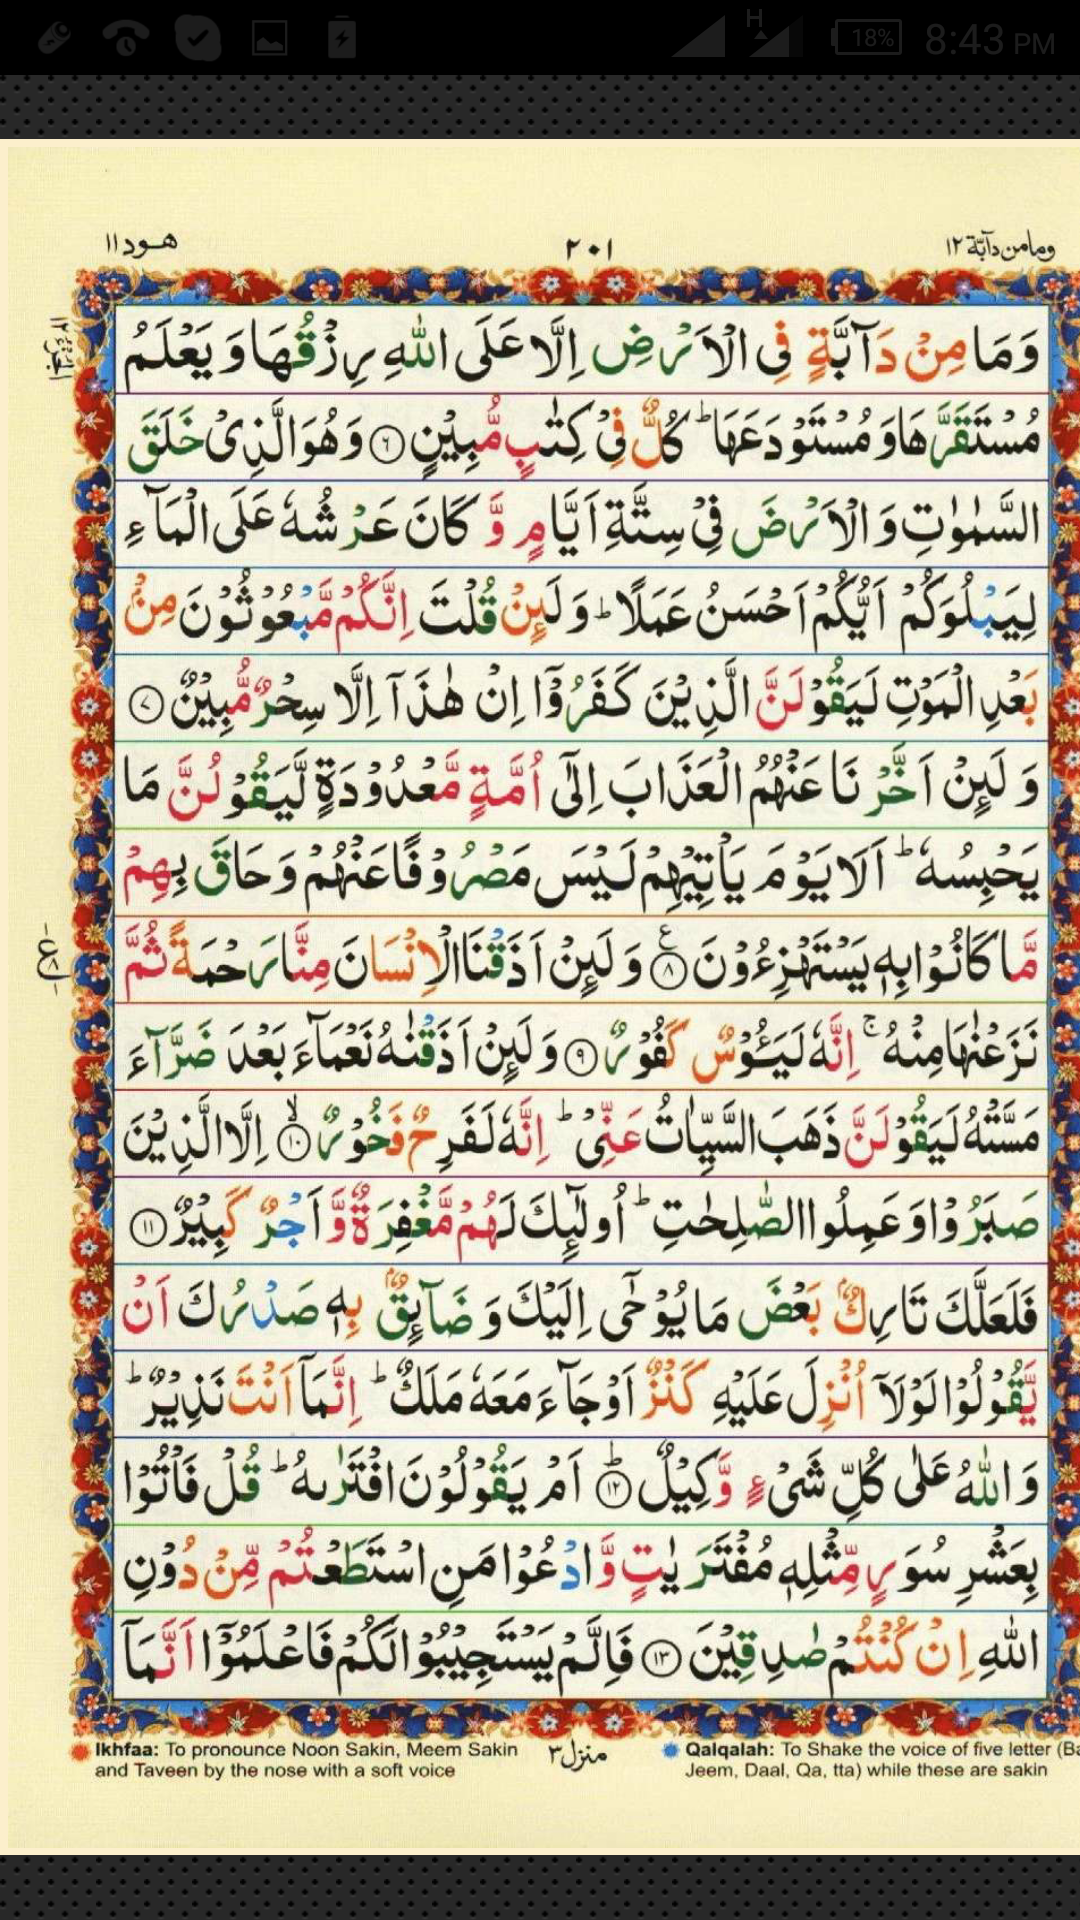 18% 8:43 PM
هود ١١ ٢٠١ ومامن دآبّة ١٢
وَمَا مِنْ دَآبَّةٍ فِى الْاَرْضِ اِلَّا عَلَى اللّٰهِ رِزْقُهَا وَ يَعْلَمُ
مُسْتَقَرَّهَا وَ مُسْتَوْدَعَهَا ؕ كُلٌّ فِیْ كِتٰبٍ مُّبِیْنٍ ۶ وَ هُوَ الَّذِیْ خَلَقَ
السَّمٰوٰتِ وَ الْاَرْضَ فِیْ سِتَّةِ اَیَّامٍ وَّ كَانَ عَرْشُهٗ عَلَى الْمَآءِ
لِیَبْلُوَكُمْ اَیُّكُمْ اَحْسَنُ عَمَلًا ؕ وَ لَىِٕنْ قُلْتَ اِنَّكُمْ مَّبْعُوْثُوْنَ مِنْ
بَعْدِ الْمَوْتِ لَیَقُوْلَنَّ الَّذِیْنَ كَفَرُوْۤا اِنْ هٰذَاۤ اِلَّا سِحْرٌ مُّبِیْنٌ ۷
وَ لَىِٕنْ اَخَّرْنَا عَنْهُمُ الْعَذَابَ اِلٰۤى اُمَّةٍ مَّعْدُوْدَةٍ لَّیَقُوْلُنَّ مَا
یَحْبِسُهٗ ؕ اَلَا یَوْمَ یَاْتِیْهِمْ لَیْسَ مَصْرُوْفًا عَنْهُمْ وَ حَاقَ بِهِمْ
مَّا كَانُوْا بِهٖ یَسْتَهْزِءُوْنَ ۸ ع وَ لَىِٕنْ اَذَقْنَا الْاِنْسَانَ مِنَّا رَحْمَةً ثُمَّ
نَزَعْنٰهَا مِنْهُ ۚ اِنَّهٗ لَیَـُٔوْسٌ كَفُوْرٌ ۹ وَ لَىِٕنْ اَذَقْنٰهُ نَعْمَآءَ بَعْدَ ضَرَّآءَ
مَسَّتْهُ لَیَقُوْلَنَّ ذَهَبَ السَّیِّاٰتُ عَنِّیْ ؕ اِنَّهٗ لَفَرِحٌ فَخُوْرٌ ۱۰ۙ اِلَّا الَّذِیْنَ
صَبَرُوْا وَ عَمِلُوا الصّٰلِحٰتِ ؕ اُولٰٓىِٕكَ لَهُمْ مَّغْفِرَةٌ وَّ اَجْرٌ كَبِیْرٌ ۱۱
فَلَعَلَّكَ تَارِكٌۢ بَعْضَ مَا یُوْحٰۤى اِلَیْكَ وَ ضَآىِٕقٌۢ بِهٖ صَدْرُكَ اَنْ
یَّقُوْلُوْا لَوْلَاۤ اُنْزِلَ عَلَیْهِ كَنْزٌ اَوْ جَآءَ مَعَهٗ مَلَكٌ ؕ اِنَّمَاۤ اَنْتَ نَذِیْرٌ ؕ
وَ اللّٰهُ عَلٰى كُلِّ شَیْءٍ وَّكِیْلٌ ۱۲ؕ اَمْ یَقُوْلُوْنَ افْتَرٰىهُ ؕ قُلْ فَاْتُوْا
بِعَشْرِ سُوَرٍ مِّثْلِهٖ مُفْتَرَیٰتٍ وَّ ادْعُوْا مَنِ اسْتَطَعْتُمْ مِّنْ دُوْنِ
اللّٰهِ اِنْ كُنْتُمْ صٰدِقِیْنَ ۱۳ فَاِلَّمْ یَسْتَجِیْبُوْا لَكُمْ فَاعْلَمُوْۤا اَنَّمَاۤ
Ikhfaa: To pronounce Noon Sakin, Meem Sakin
and Taveen by the nose with a soft voice
منزل ٣
Qalqalah: To Shake the voice of five letter (Ba
Jeem, Daal, Qa, tta) while these are sakin